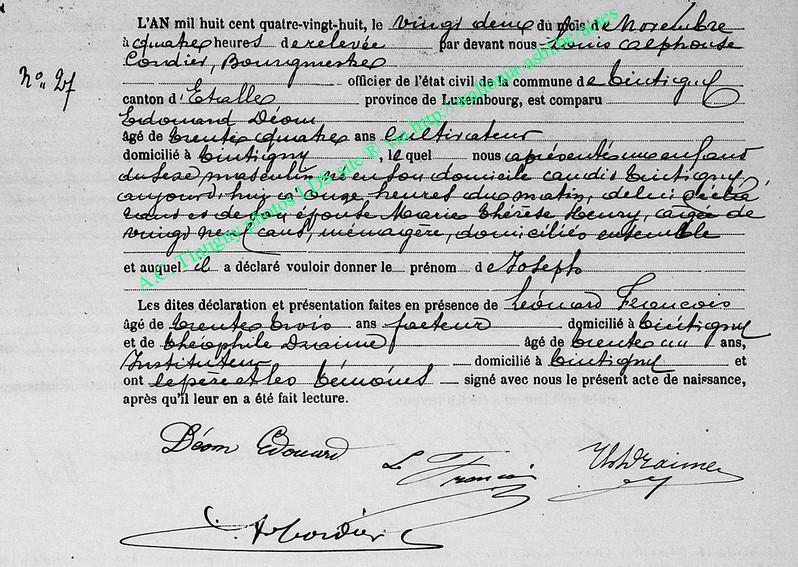 L'AN mil huit cent quatre-vingt-huit, le vingt deux du mois de Novembre
à quatre heures de relevée par devant nous Louis Alphonse
Cordier, Bourgmestre
No. 27
officier de l'état civil de la commune de Tintigny
canton d'Etalle province de Luxembourg, est comparu
Edouard Déom
âgé de trente quatre ans Cultivateur
domicilié à Tintigny, le quel nous a présenté un enfant
du sexe masculin né en son domicile audit Tintigny,
aujourd'hui à onze heures du matin, de lui décla
rant et de son épouse Marie Thérèse Henry, agée de
vingt neuf ans, ménagère, domiciliés ensemble
et auquel il a déclaré vouloir donner le prénom de Joseph
Les dites déclaration et présentation faites en présence de Léonard François
âgé de trente trois ans facteur domicilié à Tintigny
et de Théophile Draime âgé de trente un ans,
Instituteur domicilié à Tintigny et
ont le père et les témoins signé avec nous le présent acte de naissance,
après qu'il leur en a été fait lecture.
Déom Edouard
L François
Th Draime
A Cordier
A.C. Tintigny photos LDS site ® via http://wallonia-asbl.be/actes